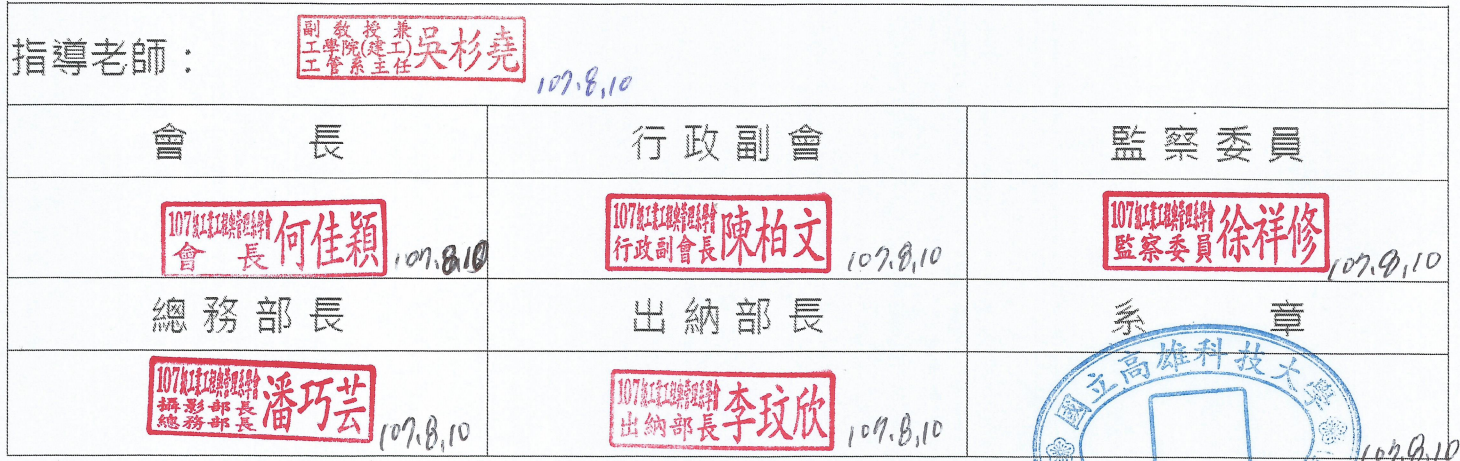 指導老師：
副教授兼
工學院(建工)
工管系主任
吳杉堯
107.8.10
會長
行政副會
監察委員
107級工業工程與管理系學會
會長
何佳穎
107.8.10
107級工業工程與管理系學會
行政副會長
陳柏文
107.8.10
107級工業工程與管理系學會
監察委員
徐祥修
107.8.10
總務部長
出納部長
系章
107級工業工程與管理系學會
攝影部長
總務部長
潘巧芸
107.8.10
107級工業工程與管理系學會
出納部長
李玟欣
107.8.10
國立高雄科技大學
107.8.10